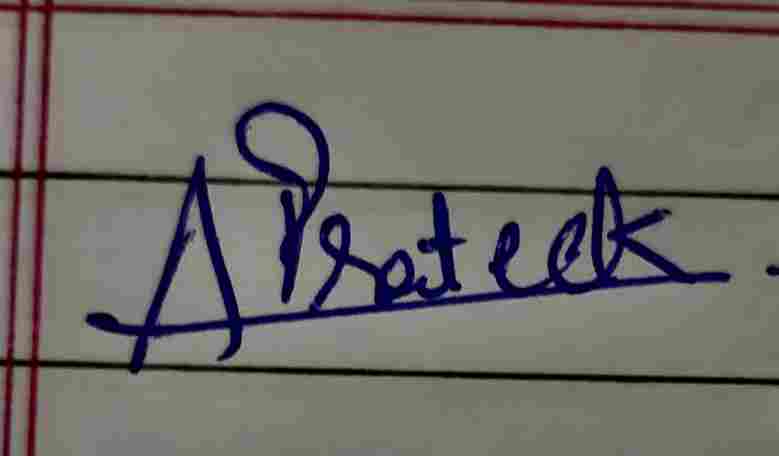 A Prateek